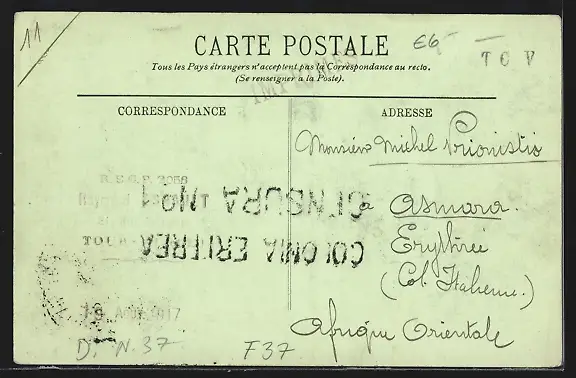 11
CARTE POSTALE
E6-
T O V
Tous les Pays étrangers n'acceptent pas la Correspondance au recto.
(Se renseigner à la Poste).
CORRESPONDANCE
ADRESSE
Monsieur Michel
à Asmara.
Erythrée
(Col. Italienne.)
Afrique Orientale
CENSURA
COLONIA ERITREA
D. N. 37
F37